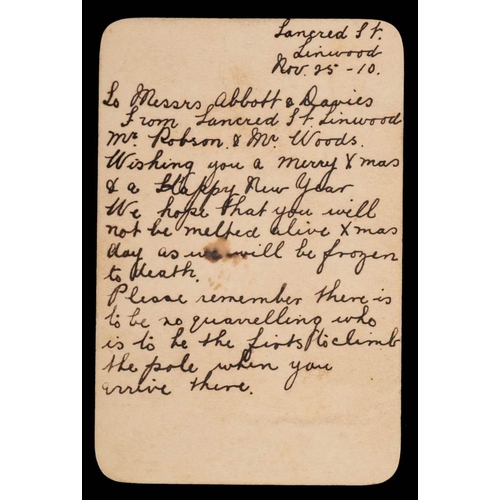 Tancred St.
Linwood
Nov. 25 - 10.
To Messrs Abbott & Davies
From Tancred St Linwood
Mr. Robson & Mr Woods.
Wishing you a merry Xmas
& a Happy New Year
We hope that you will
not be melted alive Xmas
day as we will be frozen
to death.
Please remember there is
to be no quarrelling who
is to be the firts to climb
the pole when you
arrive there.